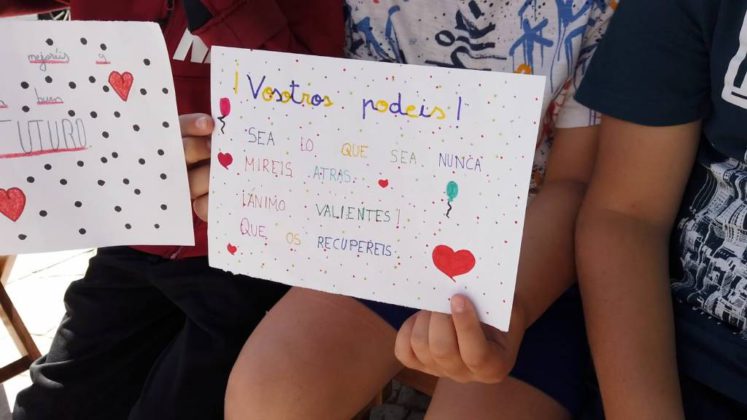 mejoráis y
buen
FUTURO
¡Vosotros podeis!
SEA LO QUE SEA NUNCA
MIREIS ATRAS.
¡ÁNIMO VALIENTES!
QUE OS RECUPEREIS.